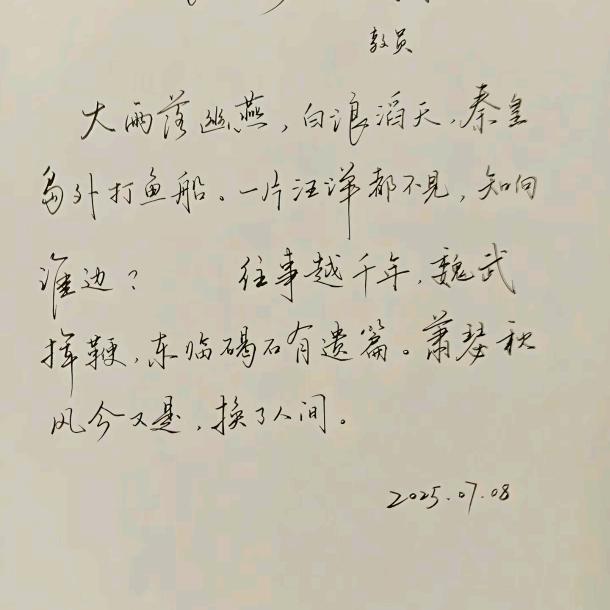 教员
大雨落幽燕，白浪滔天，秦皇
岛外打鱼船。一片汪洋都不见，知向
谁边？ 往事越千年，魏武
挥鞭，东临碣石有遗篇。萧瑟秋
风今又是，换了人间。
2025.07.08